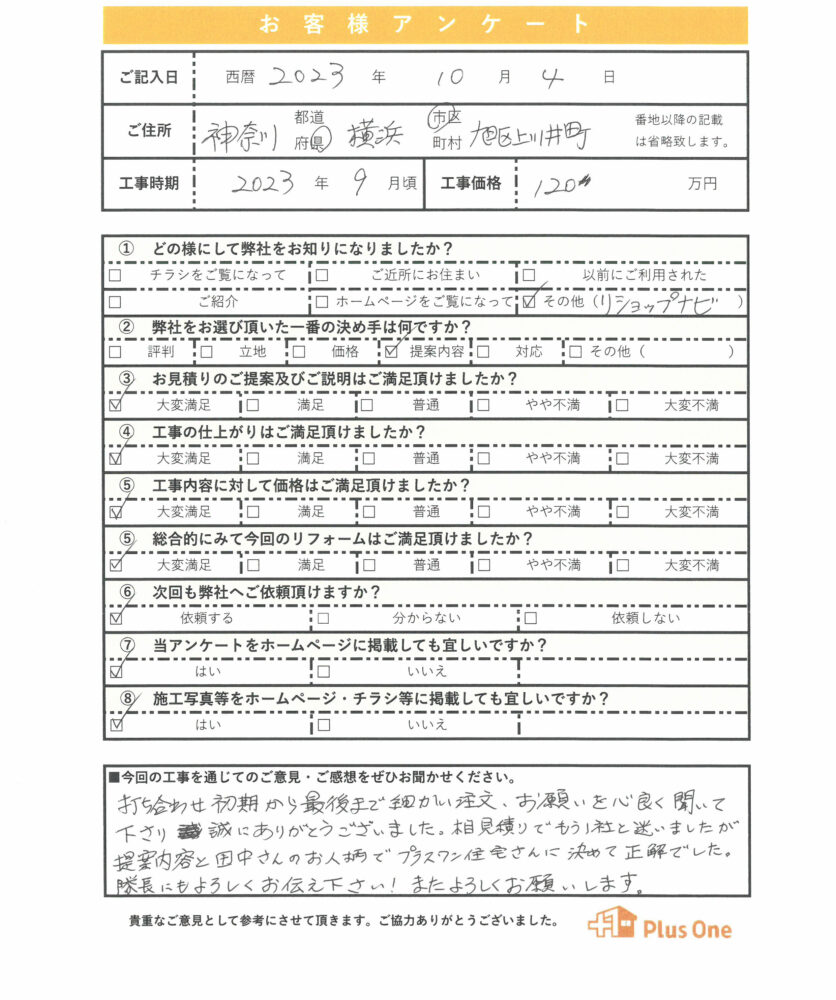 お客様アンケート
ご記入日 西暦 2023 年 10 月 4 日
ご住所 神奈川 都道府県 横浜 市区町村 旭区上川井町 番地以降の記載は省略致します。
工事時期 2023 年 9 月頃 工事価格 120 万円
① どの様にして弊社をお知りになりましたか？
□ チラシをご覧になって □ ご近所にお住まい □ 以前にご利用された
□ ご紹介 □ ホームページをご覧になって ☑ その他（リショップナビ）
② 弊社をお選び頂いた一番の決め手は何ですか？
□ 評判 □ 立地 □ 価格 ☑ 提案内容 □ 対応 □ その他（ ）
③ お見積りのご提案及びご説明はご満足頂けましたか？
☑ 大変満足 □ 満足 □ 普通 □ やや不満 □ 大変不満
④ 工事の仕上がりはご満足頂けましたか？
☑ 大変満足 □ 満足 □ 普通 □ やや不満 □ 大変不満
⑤ 工事内容に対して価格はご満足頂けましたか？
☑ 大変満足 □ 満足 □ 普通 □ やや不満 □ 大変不満
⑤ 総合的にみて今回のリフォームはご満足頂けましたか？
☑ 大変満足 □ 満足 □ 普通 □ やや不満 □ 大変不満
⑥ 次回も弊社へご依頼頂けますか？
☑ 依頼する □ 分からない □ 依頼しない
⑦ 当アンケートをホームページに掲載しても宜しいですか？
☑ はい □ いいえ
⑧ 施工写真等をホームページ・チラシ等に掲載しても宜しいですか？
☑ はい □ いいえ
■今回の工事を通じてのご意見・ご感想をぜひお聞かせください。
打ち合わせ初期から最後まで細かい注文、お願いを心良く聞いて
下さり 誠にありがとうございました。相見積りでもう1社と迷いましたが
提案内容と田中さんのお人柄でプラスワン住宅さんに決めて正解でした。
隊長にもよろしくお伝え下さい！またよろしくお願いします。
貴重なご意見として参考にさせて頂きます。ご協力ありがとうございました。
Plus One